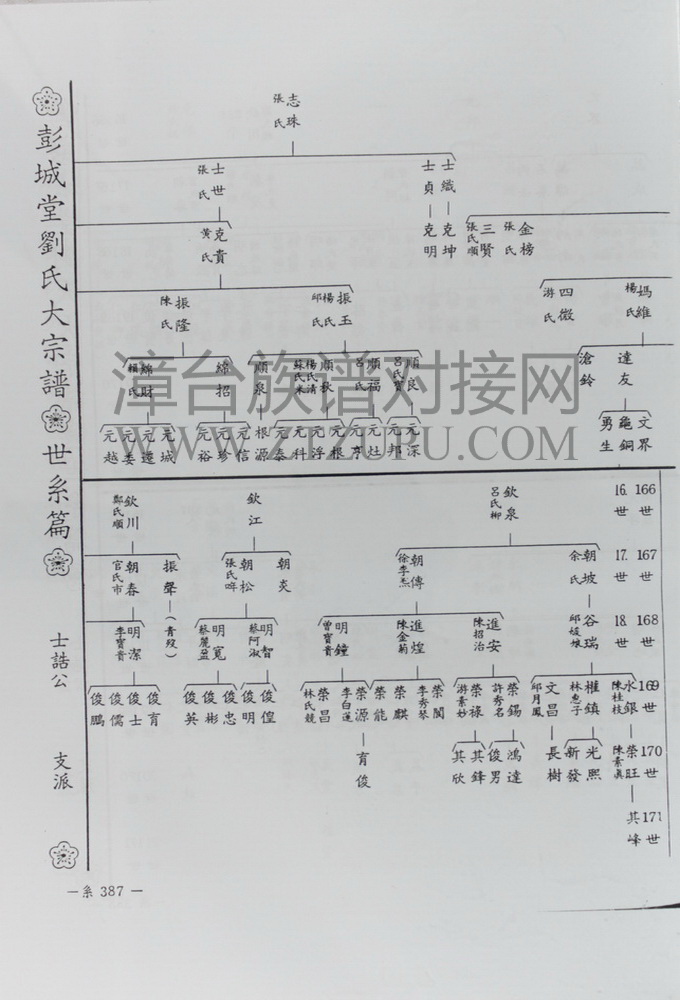 彭城堂劉氏大宗譜 世系篇
士誥公
支派
志珠
張氏
士織
士貞
士世
張氏
克坤
克明
克貴
黃氏
金榜
張氏
三賢
張氏順
媽維
楊氏
四微
游氏
振玉
楊氏
邱氏
振隆
陳氏
達友
滄鈴
順良
呂氏寶
順福
呂氏
順狄
楊氏清
蘇氏米
順泉
綿招
綿財
賴氏
文界
龜銅
勇生
元深
元邦
元灶
元亨
元根
元浮
元科
元泰
根源
元信
元珍
元裕
元城
元遷
元委
元越
漳台族谱对接网
WWW.ZTZUPU.COM
16. 166
世 世
17. 167
世 世
18. 168
世 世
169
世
170
世
171
世
欽泉
呂氏柳
欽江
欽川
鄭氏順
朝坡
余氏
朝傳
徐李杰
朝炎
朝松
張氏哖
振聲
(青殁)
朝春
官氏市
谷瑞
邱媛娘
進安
陳招治
進煌
陳金菊
明鐘
曾寶貴
明智
蔡阿淑
明寬
蔡麗盆
明潔
李寶貴
水銀
陳桂枝
權鎮
林惠子
文昌
邱月鳳
榮錫
許秀名
榮祿
游素妙
榮閣
李秀琴
榮麒
榮能
榮源
李白蓮
榮昌
林氏競
俊煌
俊明
俊忠
俊彬
俊英
俊育
俊士
俊儒
俊鵬
榮旺
陳素真
光熙
新發
長樹
鴻達
俊男
其鋒
其欣
育俊
其峰
—系 387 —